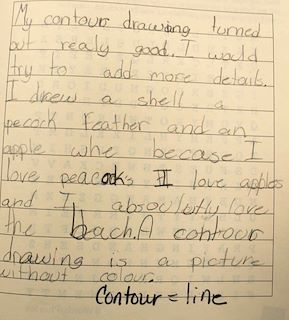 My contour drawing turned
out realy good. I would
try to add more details.
I drew a shell a
pecock feather and an
apple whe becase I
love peacocks I love apples
and I absoulutly love
the beach. A contour
drawing is a picture
without colour.
Contour = line